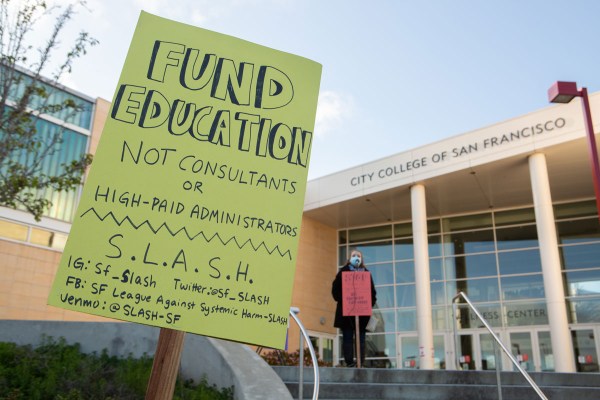 FUND
EDUCATION
NOT CONSULTANTS
OR
HIGH-PAID ADMINISTRATORS
S.L.A.S.H.
IG: Sf_Slash Twitter: @SF_SLASH
FB: SF League Against Systemic Harm-SLASH
Venmo: @SLASH-SF
CITY COLLEGE OF SAN FRANCISCO
CENTER